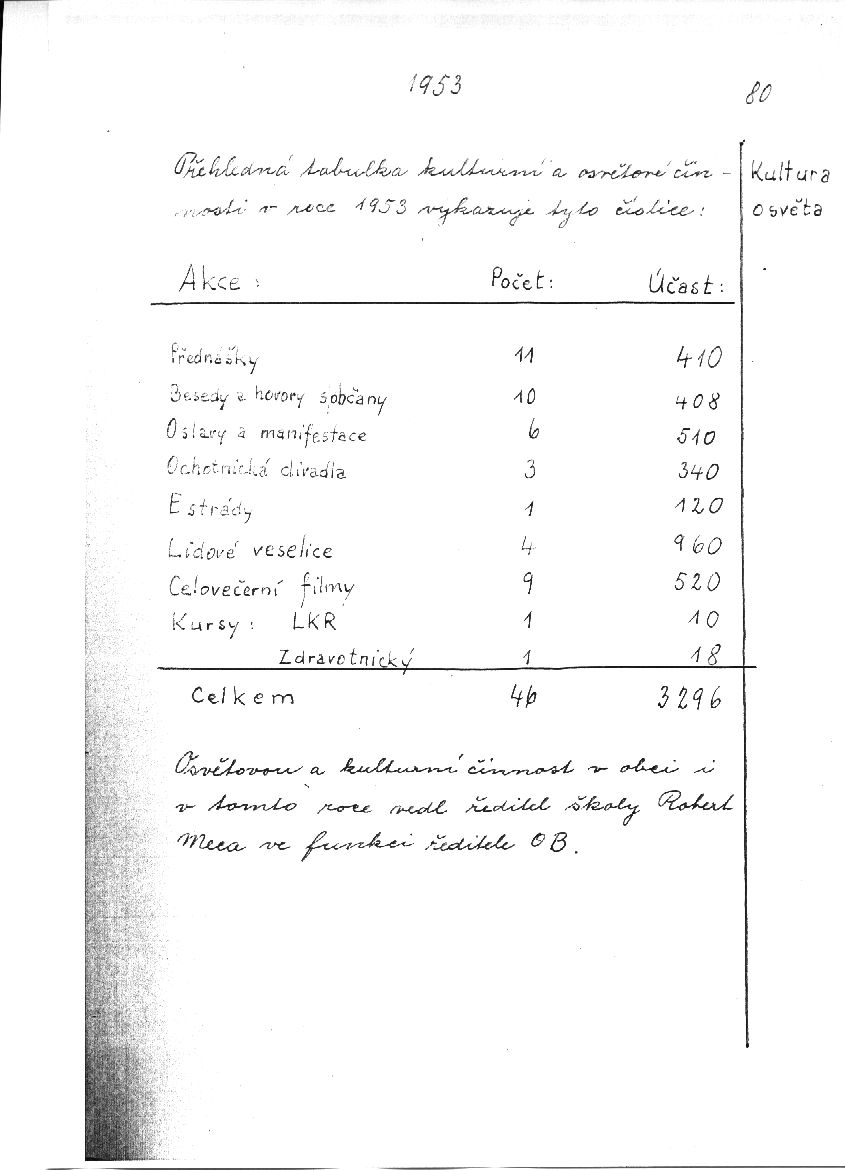 1953
80
Přehledná tabulka kulturní a osvětové čin -
nosti v roce 1953 vykazuje tyto číslice:
Kultura
osvěta
Akce : Počet: Účast:
Přednášky 11 410
Besedy a hovory s občany 10 408
Oslavy a manifestace 6 510
Ochotnická divadla 3 340
Estrády 1 120
Lidové veselice 4 960
Celovečerní filmy 9 520
Kursy : LKR 1 10
Zdravotnický 1 18
Celkem 46 3296
Osvětovou a kulturní činnost v obci i
v tomto roce vedl ředitel školy Robert
Meca ve funkci ředitele OB.